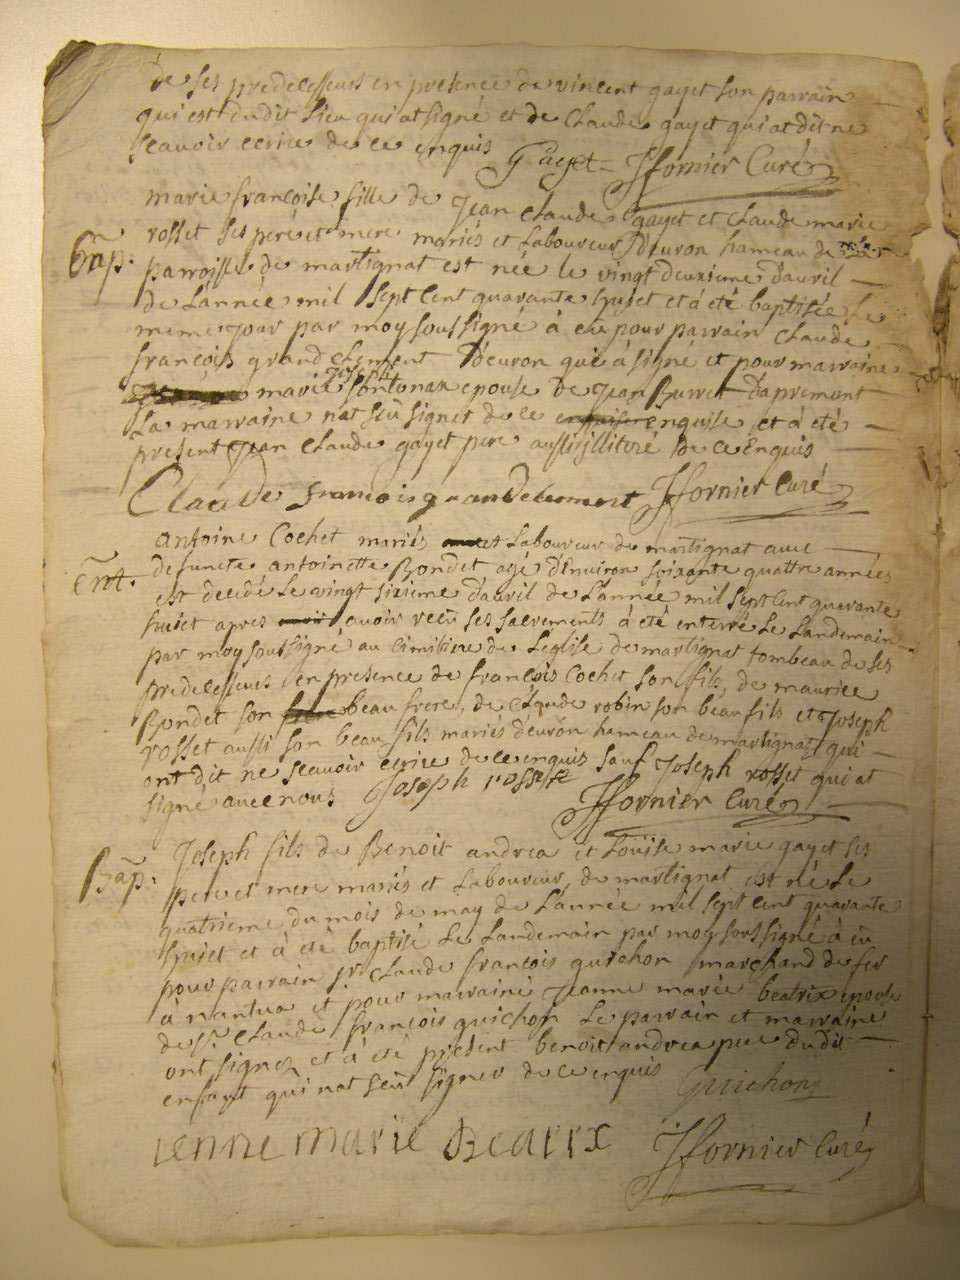 de ses predecesseurs en presence de vincent gayet son parrain
qui est dudit lieu qui at signé et de Claude gayet qui at dit ne
scavoir ecrire de ce enquis Gayet JJfornier Curé
marie françoise fille de Jean Claude gayet et Claude marie
rosset ses pere et mere mariés et Laboureur d'euron hameau de
Bap. parroisse de martignat est née le vingt deuxieme d'auril
de L'année mil sept cent quarante huiet et a été baptisée Le
meme jour par moy soussigné à eu pour parrain Claude
françois grand clement d'euron qui à signé et pour marraine
marie Josephe fontanax epouse de Jean Burret d'apremont
La marraine nat sçû signer de ce enquise et à été
present Jean Claude gayet pere aussi illiteré de ce enquis
Claude francois grandclement JJfornier Curé
antoine Cochet mariés et Laboureur de martignat avec
Ent. defuncte antoinette Bondet agé d'environ soixante quattre années
est decedé Le vingt sixieme d'auril de L'année mil sept cent quarante
huiet apres avoir reçû ses sacrements à été enterré Le Landemain
par moy soussigné au cimitiere de L'eglise de martignat tombeau de ses
predecesseurs en presence de françois Cochet son fils, de maurice
Bondet son beau frere, de Claude robin son beau fils et Joseph
rosset aussi son beau fils mariés d'euron hameau de martignat qui
ont dit ne scavoir ecrire de ce enquis sauf Joseph rosset qui at
signé avec nous Joseph rosset JJfornier Curé
Bap. Joseph fils de Benoit andrea et Loüise marie gayet ses
pere et mere mariés et Laboureur de martignat est né Le
quatrieme du mois de may de L'année mil sept cent quarante
huiet et à été baptisé Le Landemain par moy soussigné à eu
pour parrain sr. Claude françois guichon marchand de fer
à nantua et pour marraine Jeanne marie beatrix epouse
de sr. Claude françois guichon Le parrain et marraine
ont signez et à été present benoit andrea pere dudit
enfant qui nat sçû signer de ce enquis Guichon
ienne marie Bearrx JJfornier Curé